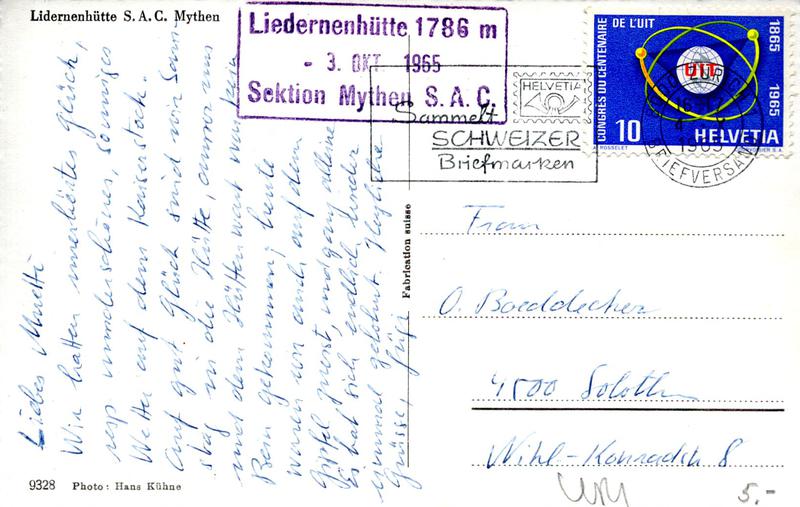 Lidernenhütte S. A. C. Mythen
Liedernenhütte 1786 m
- 3. OKT. 1965
Sektion Mythen S. A. C.
HELVETIA
Sammelt
SCHWEIZER
Briefmarken
CONGRÈS DU CENTENAIRE DE L'UIT
1865 1965
UIT
10 HELVETIA
BRIEFVERSAND
Liebes Muetti
Wir hatten unerhörtes Glück,
resp wunderschönes, sonniges
Wetter auf dem Kaiserstock.
Auf gut Glück sind wir Sam-
stag in die Hütte, ausser uns
und dem Hüttenwart war kein
Bein gekommen, heute
waren wir auch auf dem
Gipfel zuerst, und ganz alleine
Es hat sich endlich wieder
einmal gelohnt. Herzliche
Grüsse,
Fabrication suisse
Frau
O. Boeddecker
4500 Soloth
-Konradstr 8
5.-
9328 Photo: Hans Kühne